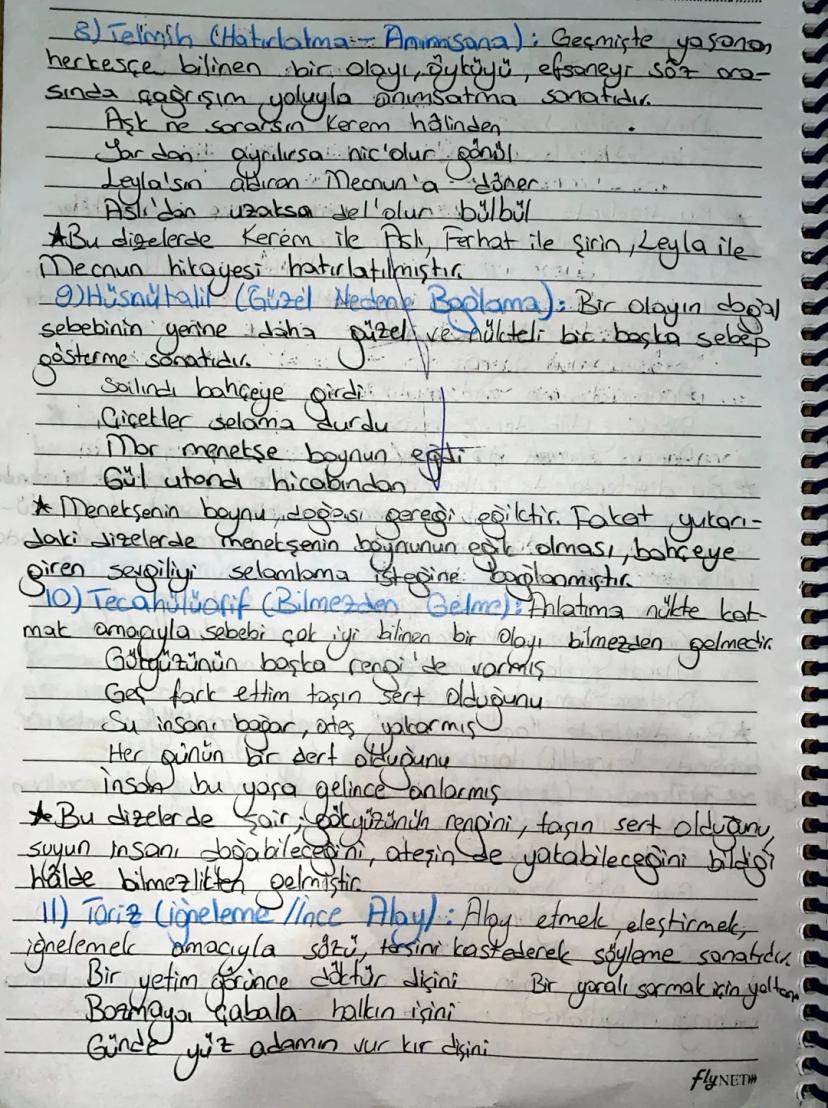 8) Telmih (Hatırlatma - Anımsama): Geçmişte yaşanan,
herkesçe bilinen bir olayı, öyküyü, efsaneyi söz ara-
sında çağrışım yoluyla anımsatma sanatıdır.
Aşk ne sorarsın Kerem hâlinden
Yar dan ayrılırsa nic'olur gönül
Leyla'sın aldıran Mecnun'a döner
Aslı'dan uzaksa del'olur bülbül
★Bu dizelerde Kerem ile Aslı, Ferhat ile Şirin, Leyla ile
Mecnun hikayesi hatırlatılmıştır.
9)Hüsnütalil (Güzel Nedene Bağlama): Bir olayın doğal
sebebinin yerine daha güzel ve nükteli bir başka sebep
gösterme sanatıdır.
Salındı bahçeye girdi
Çiçekler selama durdu
Mor menekşe boynun eğdi
Gül utandı hicabından
★ Menekşenin boynu, doğası gereği eğiktir. Fakat yukarı-
daki dizelerde menekşenin boynunun eğik olması, bahçeye
giren sevgiliyi selamlama isteğine bağlanmıştır.
10) Tecahülüarif (Bilmezden Gelme): Anlatıma nükte kat-
mak amacıyla sebebi çok iyi bilinen bir olayı bilmezden gelmedir.
Gökyüzünün başka rengi'de varmış
Geç fark ettim taşın sert olduğunu
Su insanı boğar, ateş yakarmış
Her günün bir dert olduğunu
İnsan bu yaşa gelince anlarmış
★Bu dizelerde şair; gökyüzünün rengini, taşın sert olduğunu,
suyun insanı boğabileceğini, ateşin de yakabileceğini bildiği
hâlde bilmezlikten gelmiştir
11) Tariz (iğneleme / İnce Alay): Alay etmek, eleştirmek,
iğnelemek amacıyla sözü, tersini kastederek söyleme sanatıdır.
Bir yetim görünce döktür dişini Bir yaralı sarmak için yeltenme
Bozmaya çabala halkın işini
Günde yüz adamın vur kır dişini
flyNET